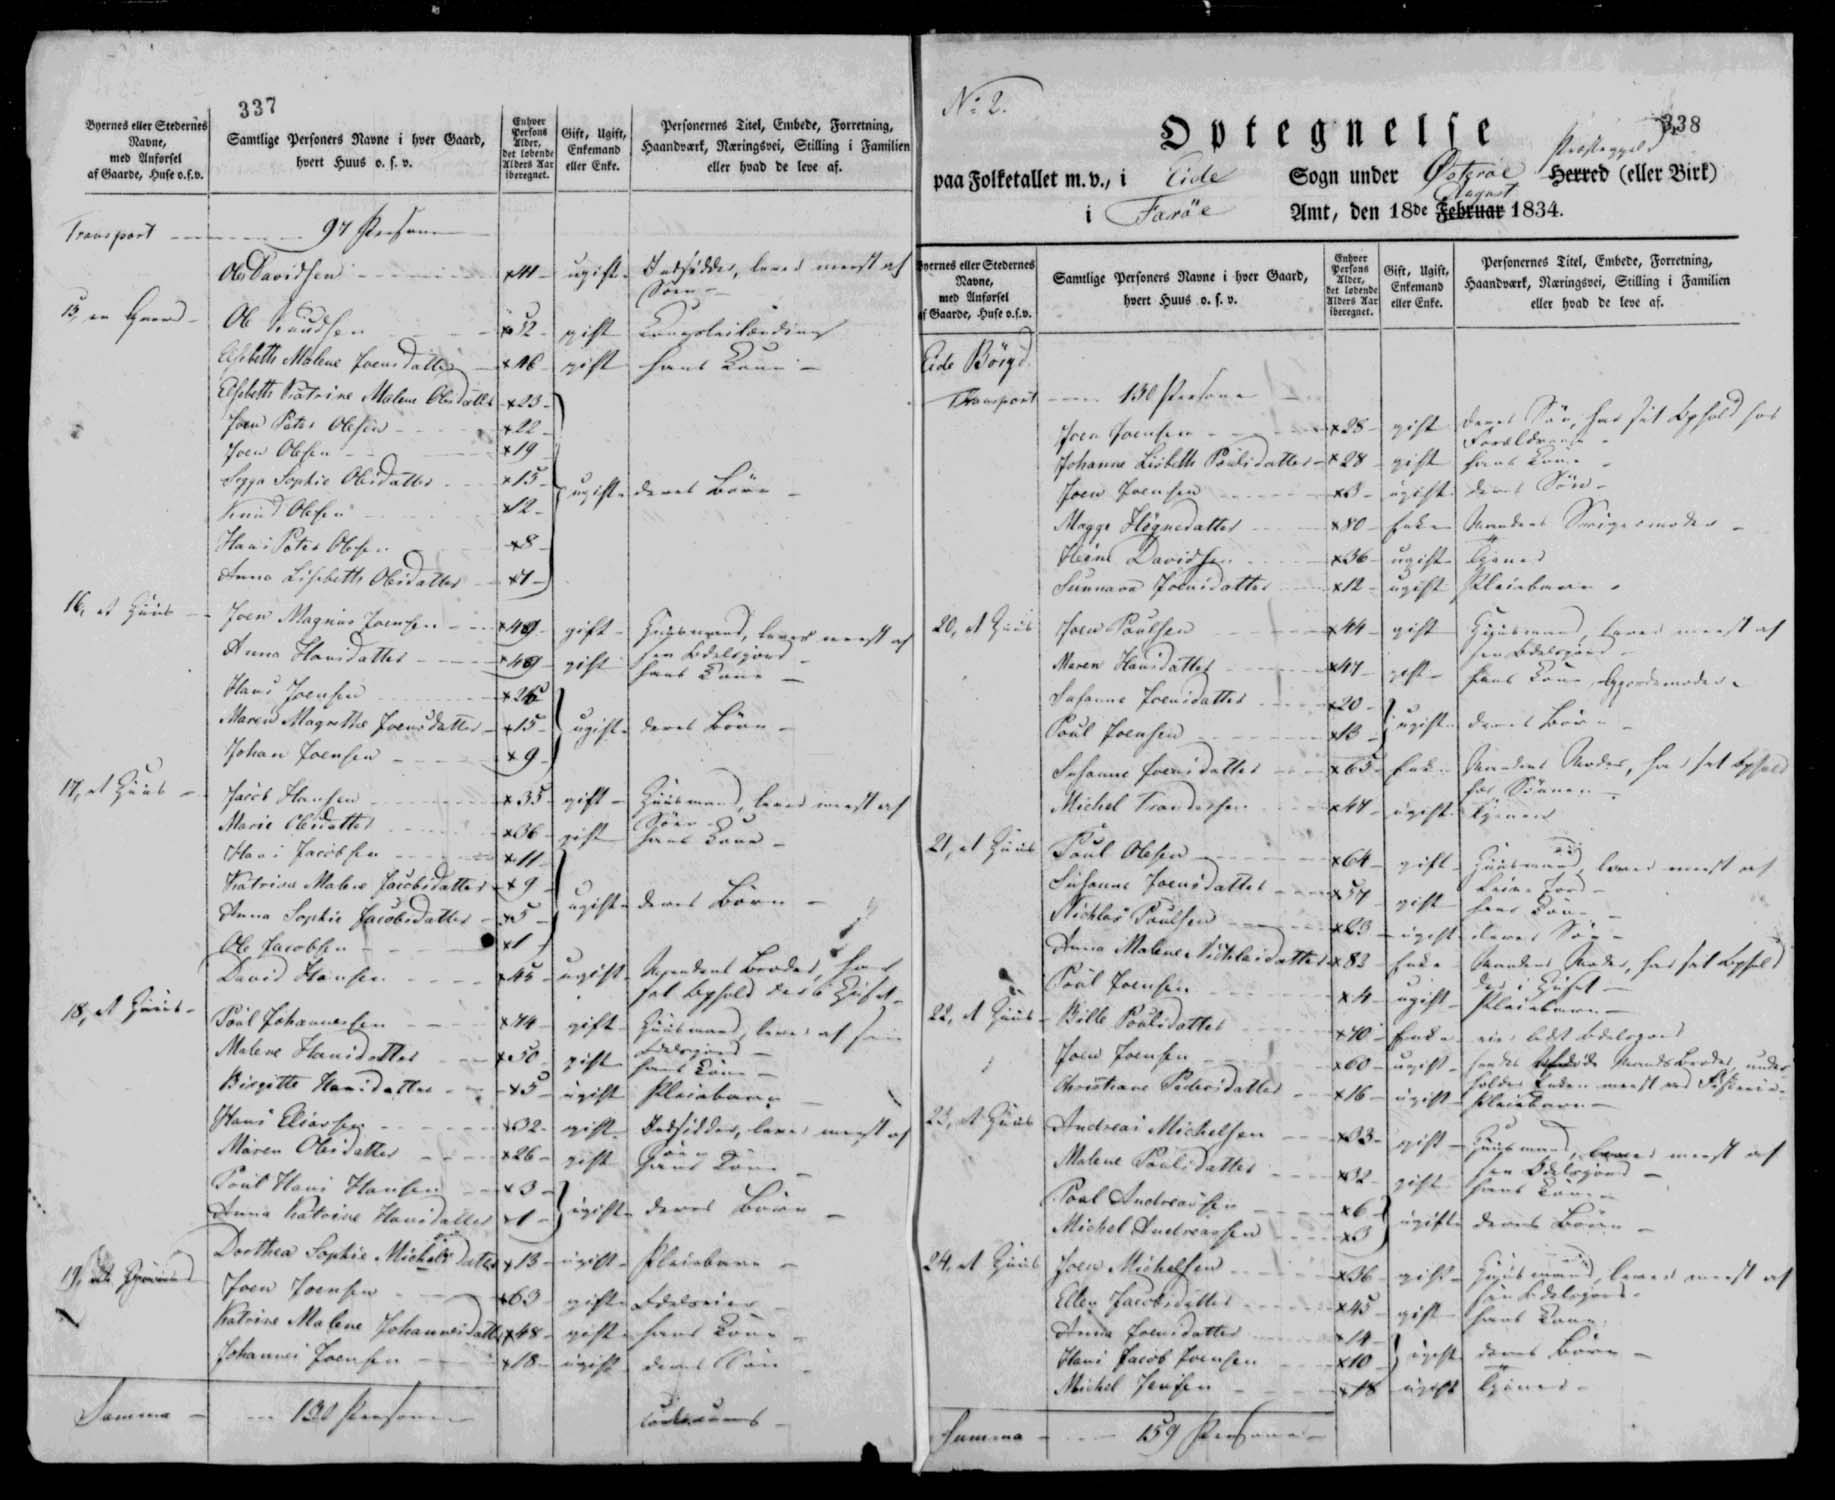 337
Byernes eller Stedernes Navne, med Anførsel af Gaarde, Huse o.s.v.
Samtlige Personers Navne i hver Gaard, hvert Huus o. s. v.
Enhver Persons Alder, det løbende Alders Aar iberegnet.
Gift, Ugift, Enkemand eller Enke.
Personernes Titel, Embede, Forretning, Haandværk, Næringsvei, Stilling i Familien eller hvad de leve af.
Transport 97 Personer
Ole Davidsen 41 ugift Indsidder, lever meest af Söen
15, en Gaard Ole Knudsen 52 gift
Elsebeth Malene Joensdatter 46 gift hans Kone
Elsebeth Katrine Malene Olesdatter 23
Joen Peter Olesen 22
Joen Olesen 19
Sophie Olesdatter 15 ugift deres Börn
Knud Olesen 12
Hans Peter Olesen 8
Anna Lisbeth Olesdatter 1
16, et Huus Joen Magnus Joensen 49 gift Huusmand, lever meest af sin Odelsjord
Anna Hansdatter 49 gift hans Kone
Hans Joensen 26
Maren Magrethe Joensdatter 15 ugift deres Börn
Johan Joensen 9
17, et Huus Jacob Hansen 35 gift Huusmand, lever meest af Söen
Marie Olesdatter 36 gift hans Kone
Hans Jacobsen 11
Katrine Malene Jacobsdatter 9
Anna Sophie Jacobsdatter 5 ugift deres Börn
Ole Jacobsen 1
David Hansen 45 ugift Mandens Broder, har sit Ophold der i Huset
18, et Huus Poul Johannesen 74 gift Huusmand, lever af sin Odelsjord
Malene Hansdatter 50 gift hans Kone
Birgitte Hansdatter 5 ugift Pleiebarn
Hans Eliassen 32 gift Indsidder, lever meest af Söen
Maren Olesdatter 26 gift hans Kone
Poul Hans Hansen 3
Anna Katrine Hansdatter 1 ugift deres Börn
Dorthea Sophie Michelsdatter 13 ugift Pleiebarn
19, Joen Joensen 63 gift Odelseier
Katrine Malene Johannesdatter 48 gift hans Kone
Johannes Joensen 18 ugift deres Sön
Summa 130 Personer
No 2.
338
Optegnelse
paa Folketallet m.v., i Eide Sogn under Østerøe Præstegjeld Herred (eller Birk)
i Farøe Amt, den 18de Februar August 1834.
Byernes eller Stedernes Navne, med Anførsel af Gaarde, Huse o.s.v.
Samtlige Personers Navne i hver Gaard, hvert Huus o. s. v.
Enhver Persons Alder, det løbende Alders Aar iberegnet.
Gift, Ugift, Enkemand eller Enke.
Personernes Titel, Embede, Forretning, Haandværk, Næringsvei, Stilling i Familien eller hvad de leve af.
Eide Böygd
Transport 130 Personer
Joen Joensen 28 gift deres Sön, har sit Ophold hos Forældrene
Johanne Lisbeth Poulsdatter 28 gift hans Kone
Joen Joensen 3 ugift deres Sön
Magge Høgnedatter 80 Enke Mandens Svigermoder
Heine Davidsen 36 ugift tjener
Sunnava Joensdatter 12 ugift Pleiebarn
20, et Huus Joen Poulsen 44 gift Huusmand, lever meest af sin Odelsjord
Maren Hansdatter 47 gift hans Kone, Gjordemoder
Susanne Joensdatter 20
Poul Joensen 13 ugift deres Börn
Susanne Joensdatter 65 Enke Mandens Moder, har sit Ophold hos Sönnen
Michel Trondersen 47 ugift tjener
21, et Huus Poul Olesen 64 gift Huusmand, lever meest af Leiejord
Susanne Joensdatter 57 gift hans Kone
Nichlas Poulsen 23 ugift deres Sön
Anna Malene Nichlasdatter 83 Enke Mandens Moder, har sit Ophold der i Huset
Poul Joensen 4 ugift Pleiebarn
22, et Huus Bille Poulsdatter 70 Enke eier lidt Odelsjord
Joen Joensen 60 ugift hendes Mands Broder, underholder Enken meest ved Fiskerie
Christiane Pedersdatter 16 ugift Pleiebarn
23, et Huus Andreas Michelsen 33 gift Huusmand, lever meest af sin Odelsjord
Malene Poulsdatter 32 gift hans Kone
Poul Andreassen 6
Michel Andreassen 3 ugift deres Börn
24, et Huus Joen Michelsen 36 gift Huusmand, lever meest af sin Odelsjord
Ellen Jacobsdatter 45 gift hans Kone
Anna Joensdatter 14
Hans Jacob Joensen 10 ugift deres Börn
Michel Jensen 18 ugift tjener
Summa 159 Personer